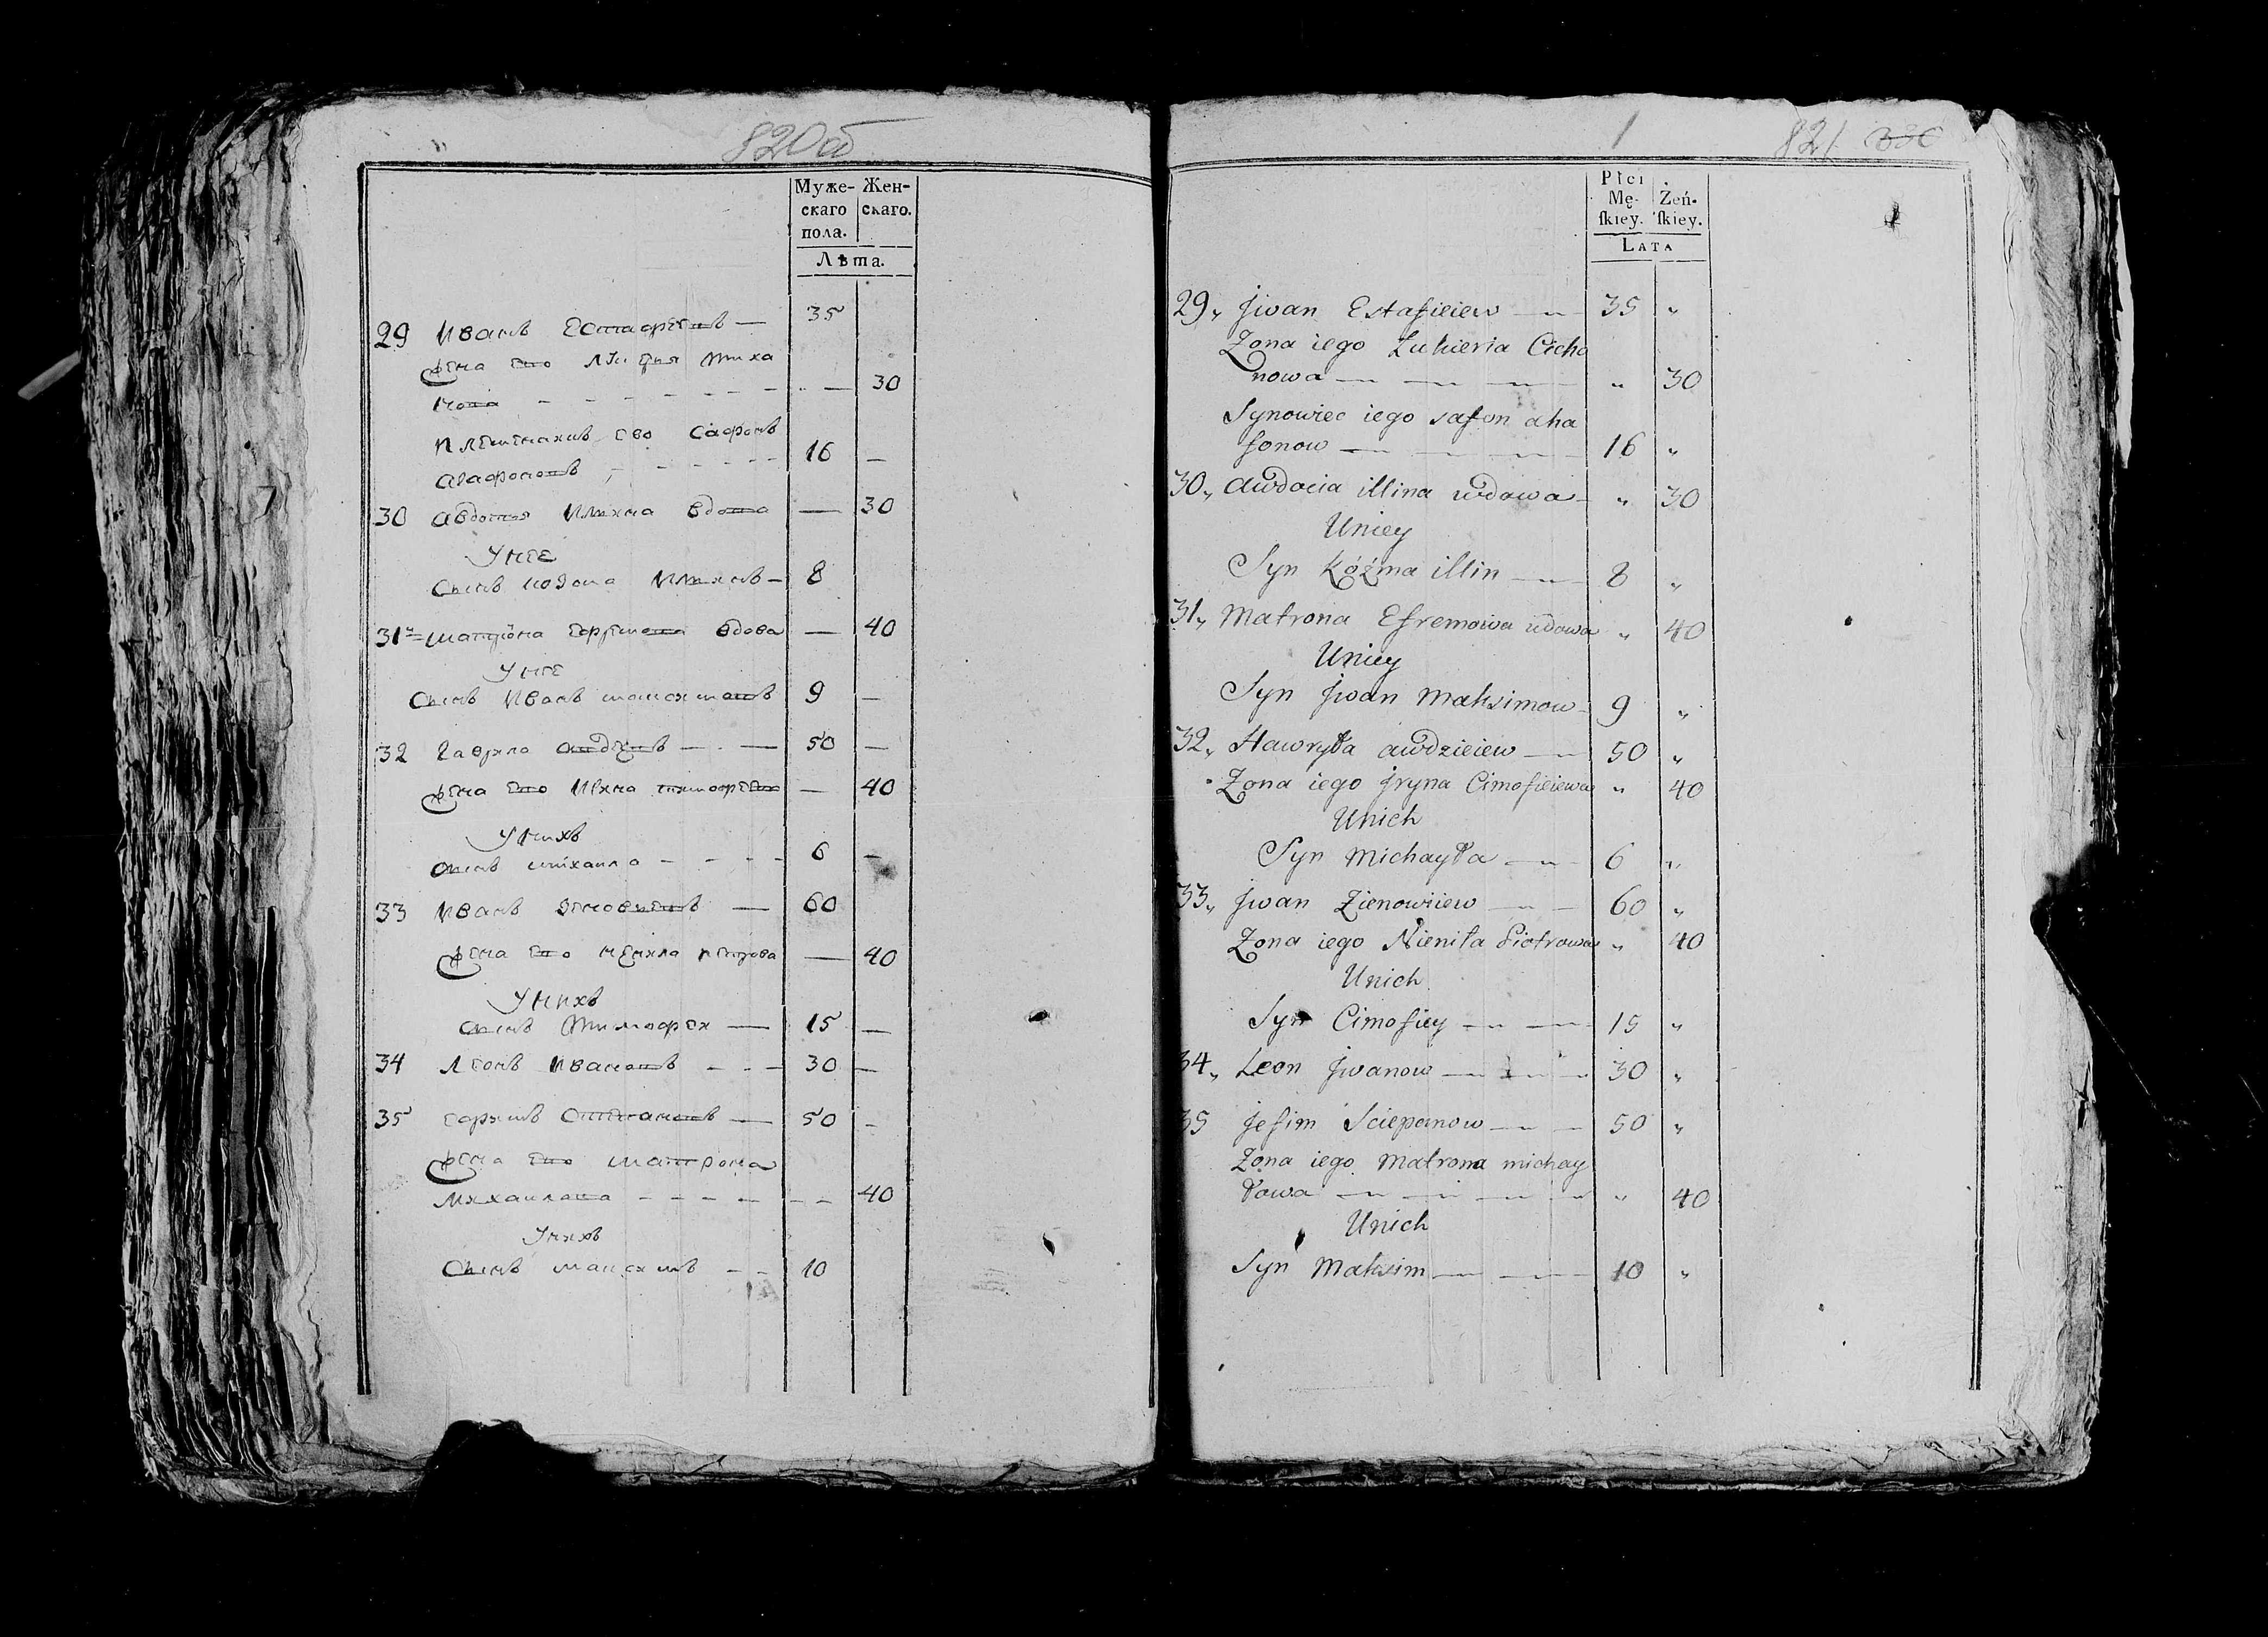 820об
Муже- Жен-
скаго скаго.
пола.
Лѣта.
29 Иванъ Естафеевъ — 35
жена ево Лукерия Тиха
нова - - - - - - - — 30
племеникъ ево Сафонъ
Агафоновъ - - - - - 16 —
30 Авдотья Ильина вдова — 30
У нее
Сынъ Козма Ильинъ — 8
31 Матрона Ефремова вдова — 40
У нее
Сынъ Иванъ Максимовъ 9 —
32 Гаврила Авдеевъ — - — 50 —
жена ево Ирина Тимофеева — 40
У нихъ
Сынъ Михаила - - - - 6 —
33 Иванъ Зеновьевъ — 60
жена ево Ненила Петрова — 40
У нихъ
Сынъ Тимофеи — 15 —
34 Леонъ Ивановъ - - - 30 —
35 Ефимъ Степановъ — 50 -
жена ево Матрона
Михаилова - - - - - - 40
У нихъ
Сынъ Максимъ - - 10
1 821
Płci
Mę- Żeń-
ſkiey. ſkiey.
Lata
29„ Jwan Estafieiew — „ — 35 „
Zona iego Łukieria Cicho
nowa — — — — „ 30
Synowiec iego safon aha
fonow — — — — 16 „
30„ Awdocia illina wdowa - „ 30
Uniey
Syn Kóźma illin — „ — 8 „
31„ Matrona Efremowa wdowa „ 40
Uniey
Syn Jwan Maksimow - 9 „
32„ Hawryła awdzieiew — 50 „
Zona iego Jryna Cimofieiewa „ 40
Unich
Syn Michayła — „ — 6 „
33„ Jwan Zienowiiew — „ — 60 „
Zona iego Nieniła Piotrowa „ 40
Unich
Syn Cimofiey — „ — 15 „
34„ Leon Jwanow — „ — „ 30 „
35 Jefim Sciepanow — „ — 50 „
Zona iego Matrona michay
łowa — „ — „ — „ „ 40
Unich
Syn Maksim — — — 10 „